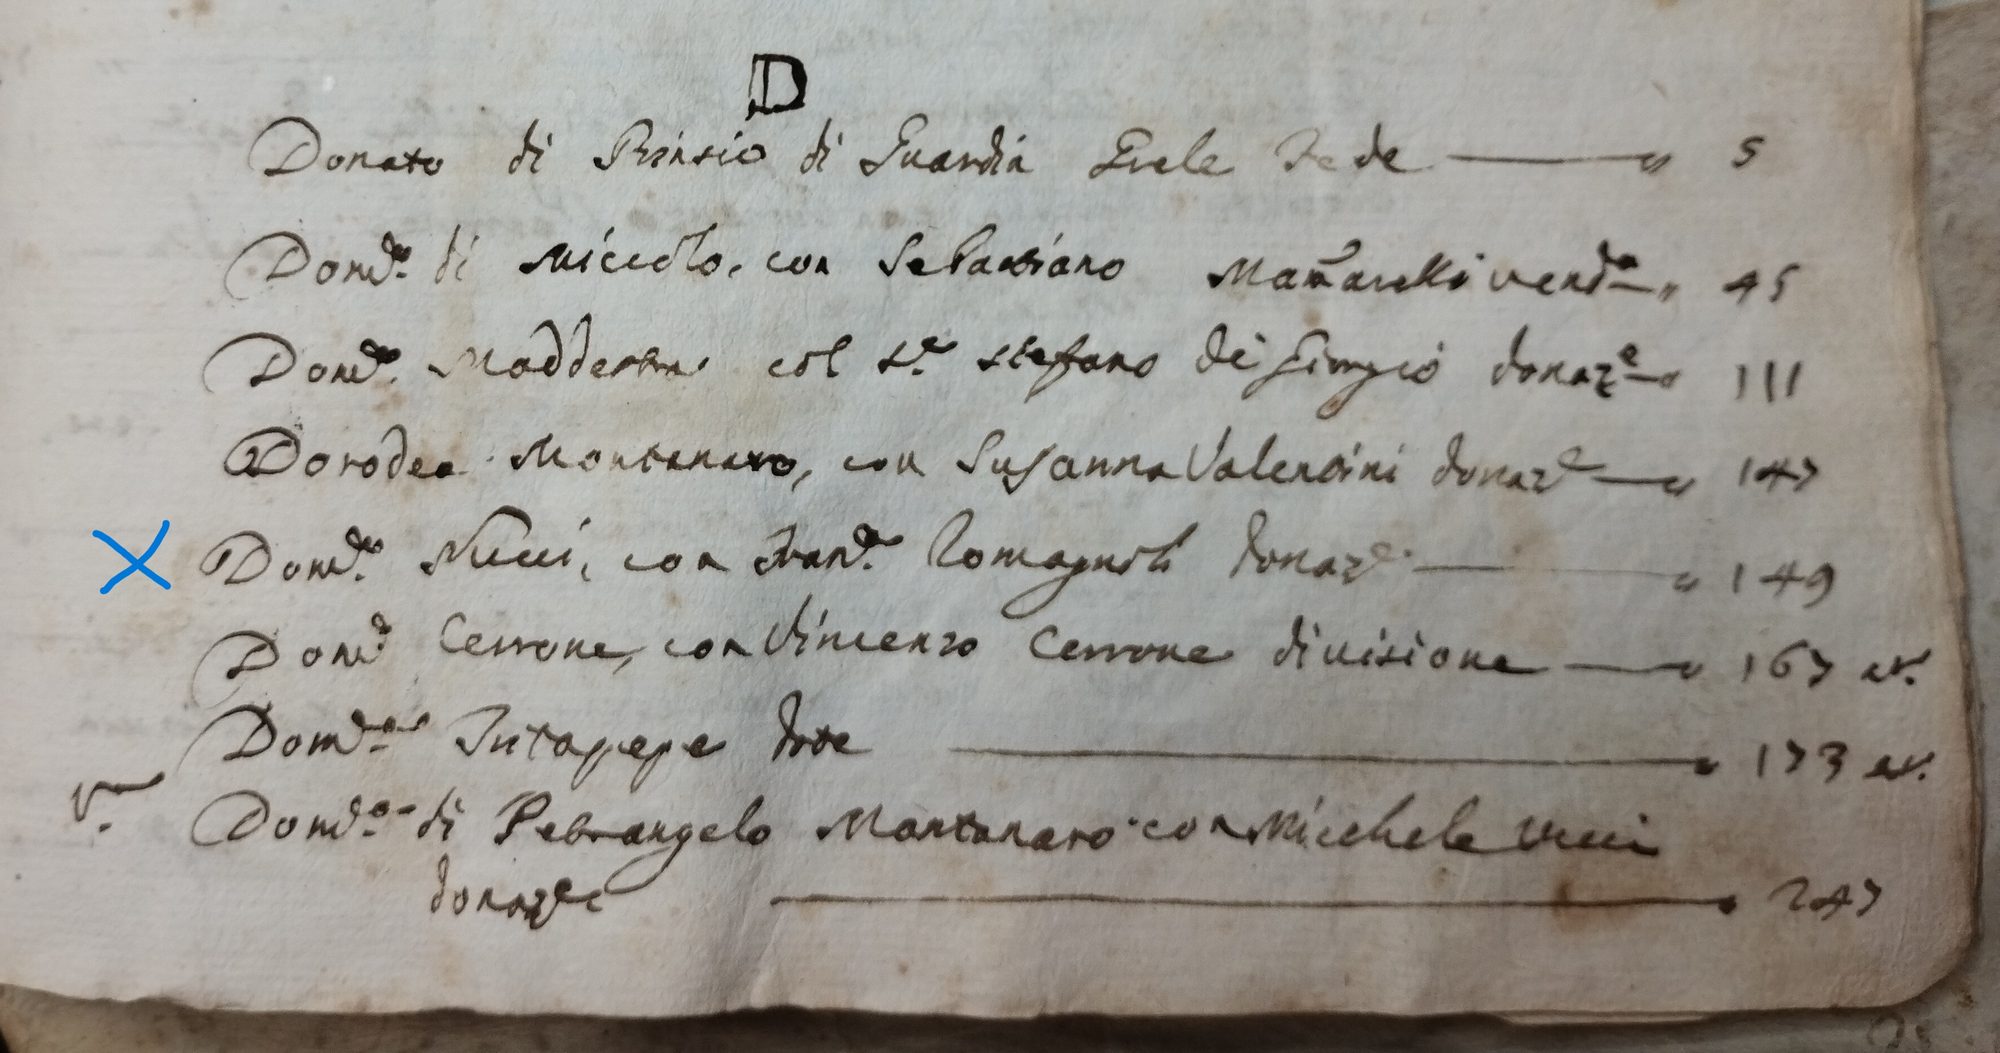 D
Donato di Prinsio di Guardia Grele fede 5
Dom.co di Niccolo, con Sebastiano vend.a 45
Dom.co col S.r Stefano de Giorgio donaz.e 111
Dorodea Montanaro, con Susanna Valentini donaz.e 147
Dom.co Nucci, con Fran.co Romagnoli donaz.e 149
Dom.co Cerrone, con Vincenzo Cerrone divisione 167 v.
Dom.co Intapepe dote 173 v.
Dom.co di Petrangelo Montanaro con Micchele Ucci
donaz.e 247